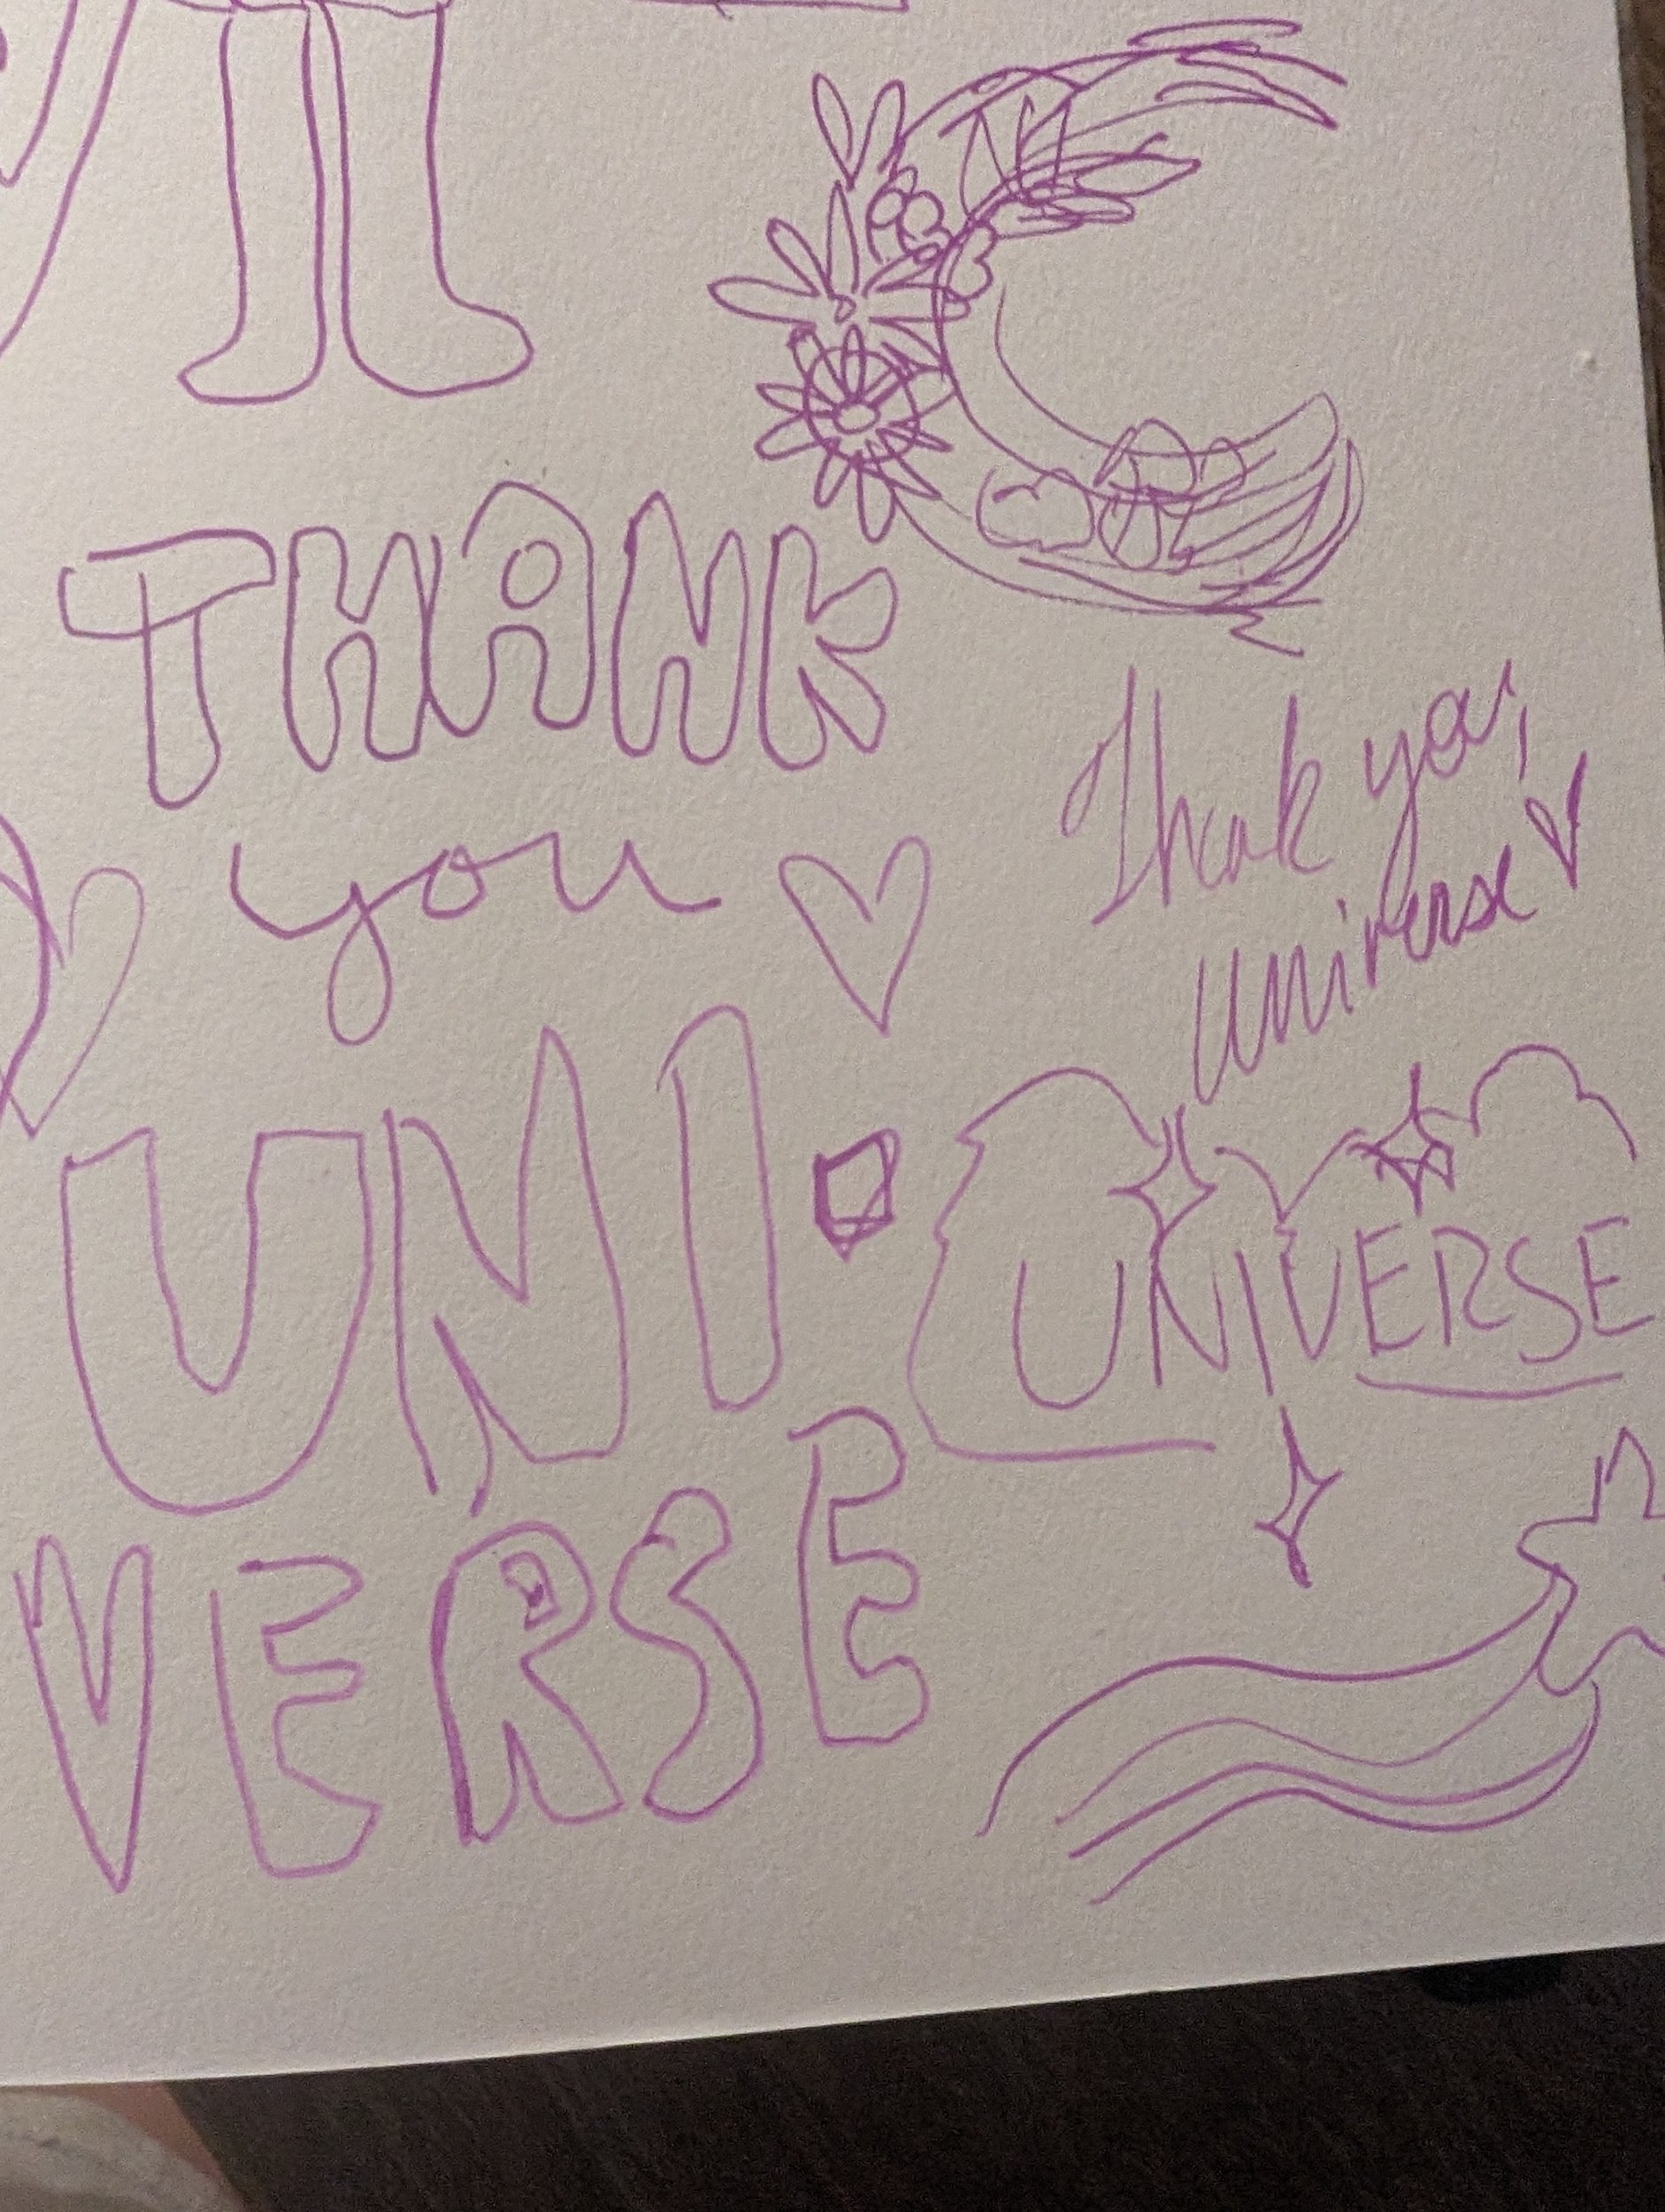 THANK
you
UNI·
VERSE
Thank you,
universe
UNIVERSE